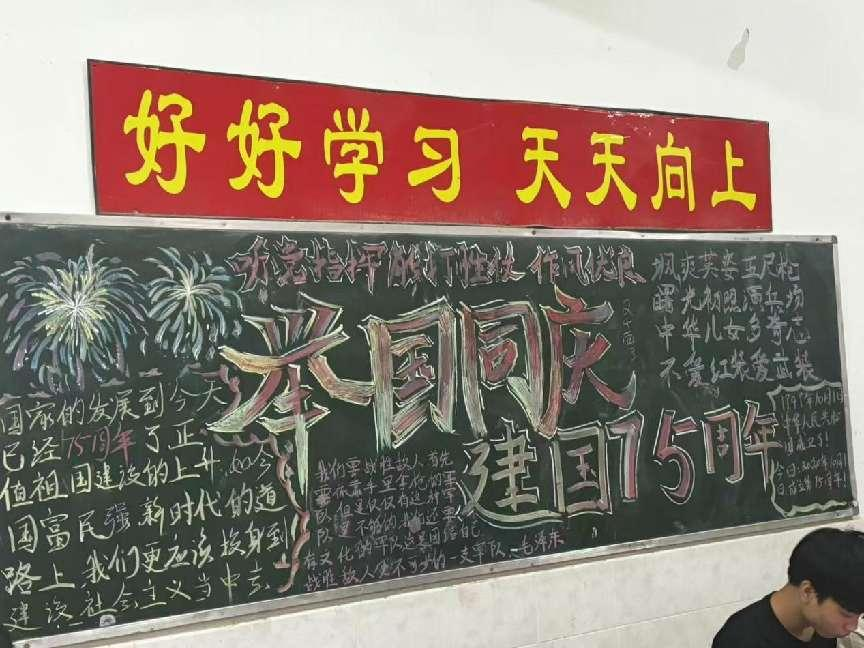 好好学习 天天向上
听党指挥能打胜仗 作风优良
举国同庆
建国75周年
飒爽英姿五尺枪
曙光初照演兵场
中华儿女多奇志
不爱红装爱武装
国家的发展到今天
已经75周年了正
值祖国建设的上升 如今
国富民强 新时代的道
路上 我们更应该投身到
建设社会主义当中去
我们要战胜敌人 首先
要依靠手里拿枪的军
队 但是仅仅有这种军
队是不够的 我们还要
有文化的军队 这是团结自己
战胜敌人必不可少的一支军队 毛泽东
年10月1日
中华人民共和
国成立了!